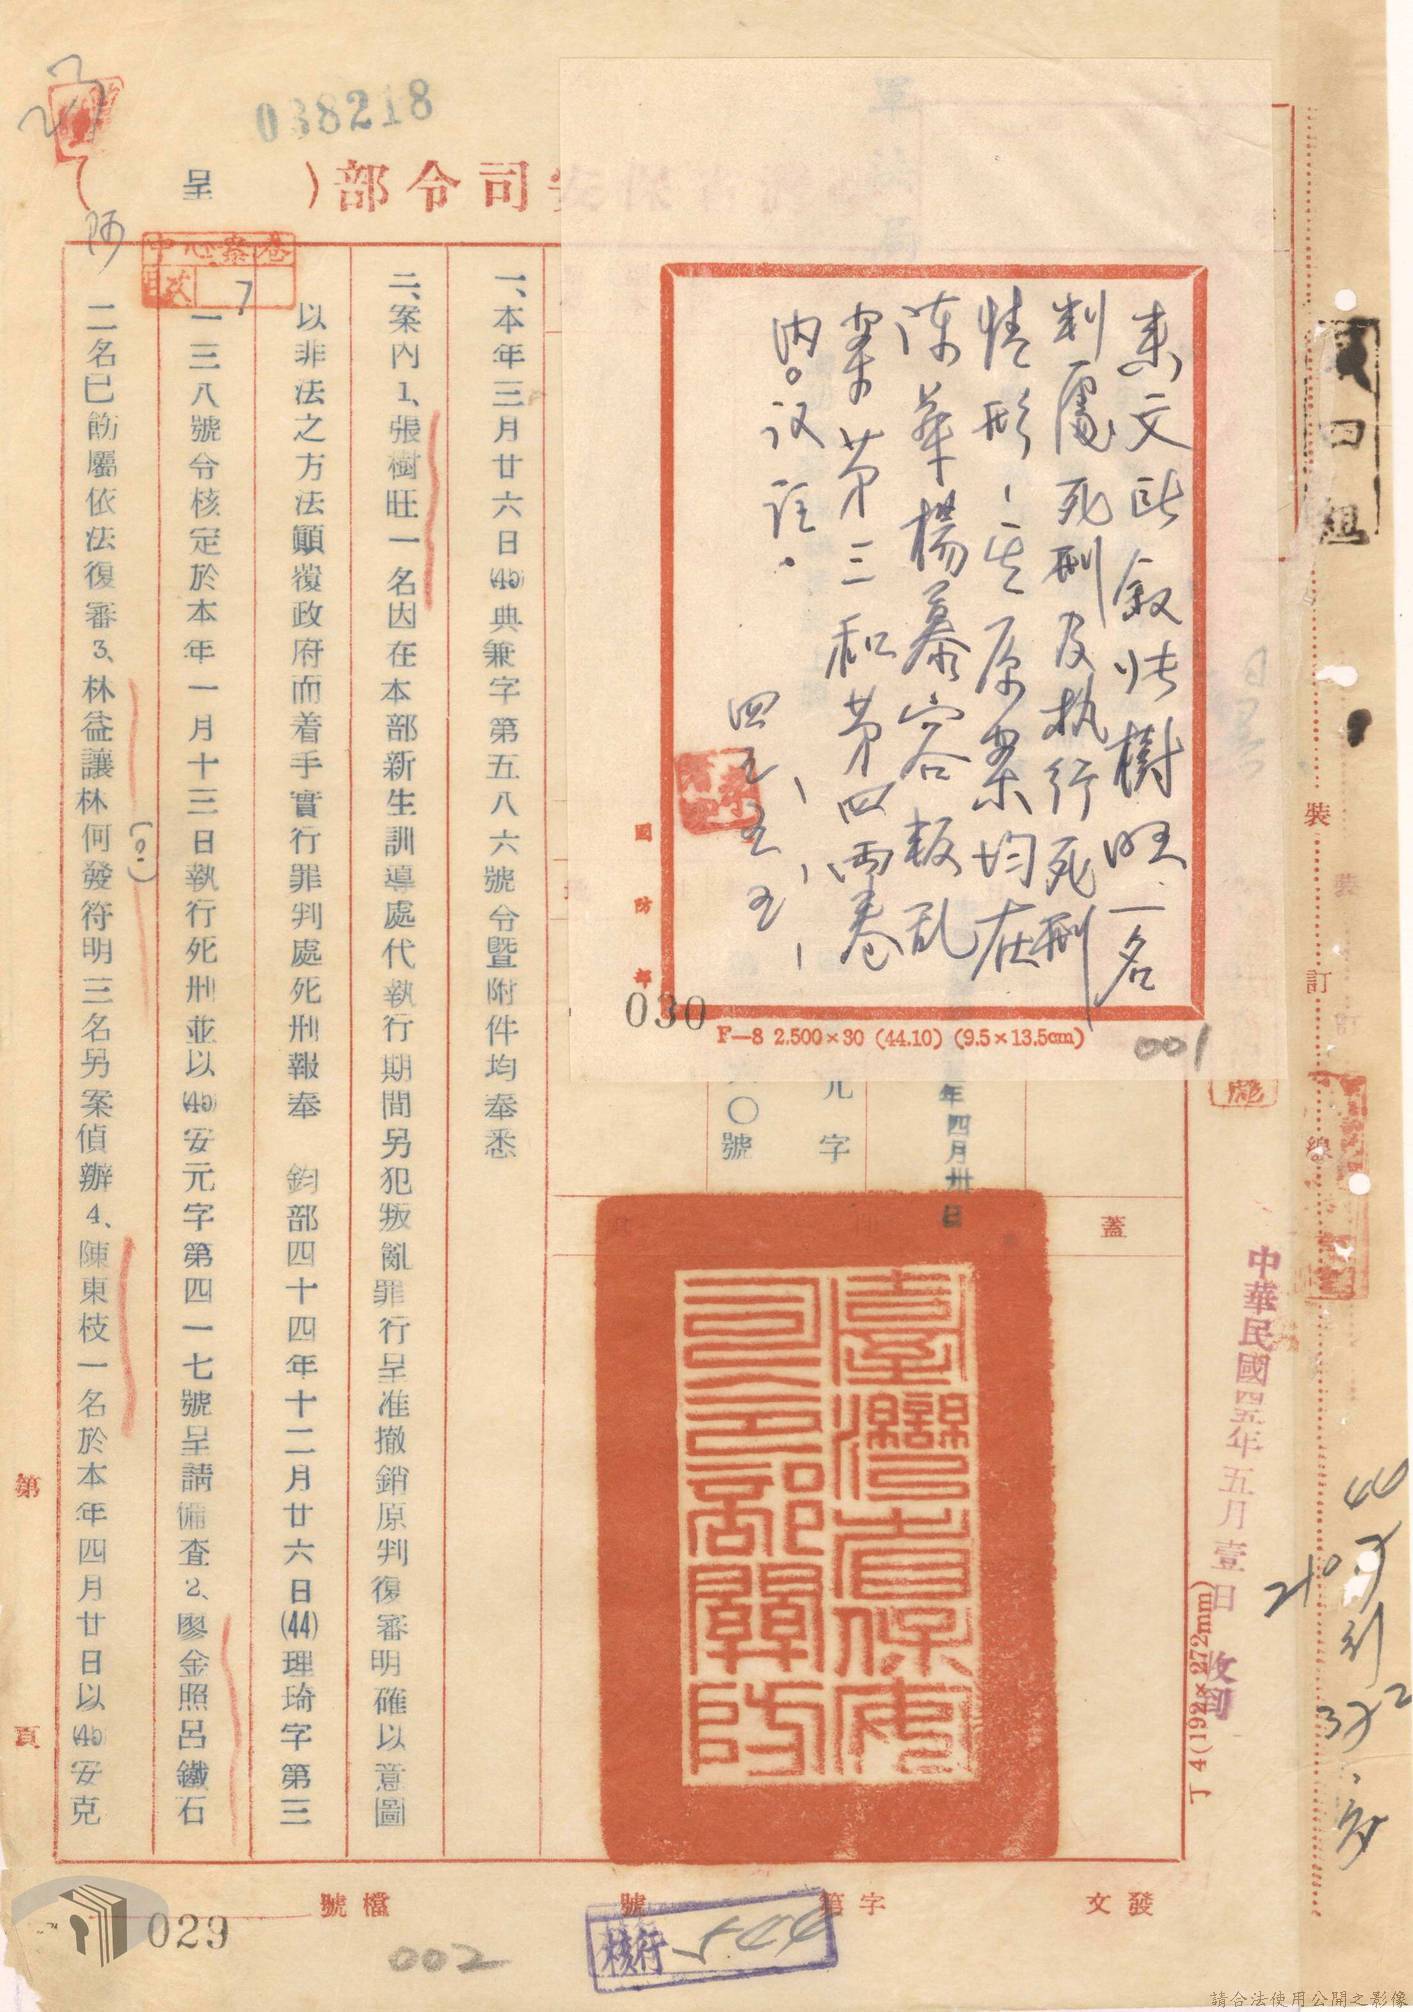 038218
呈
部令司
保安
中心案卷
目次
7
來文所敘張樹旺一名
判處死刑及執行死刑
情形、其原案均在
陳華楊慕容叛亂
案第三和第四兩卷
內。汉註。
四五、五、五、
國防部
030
F—8 2.500×30 (44.10) (9.5×13.5cm)
001
年四月卅日
元字
〇號
蓋
臺灣省保安
司令部關防
一、本年三月廿六日(45)典兼字第五八六號令暨附件均奉悉
二、案內1、張樹旺一名因在本部新生訓導處代執行期間另犯叛亂罪行呈准撤銷原判復審明確以意圖
以非法之方法顛覆政府而着手實行罪判處死刑報奉 鈞部四十四年十二月廿六日(44)理琦字第三
一三八號令核定於本年一月十三日執行死刑並以(45)安元字第四一七號呈請備查2、廖金照呂鐵石
二名已飭屬依法復審3、林益讓林何發符明三名另案偵辦4、陳東枝一名於本年四月廿日以(45)安克
第 頁
裝訂線
中華民國四五年五月壹日 收到
丁4(192×272mm)
發文 字第 號
檔號
核行
029
002
請合法使用公開之影像